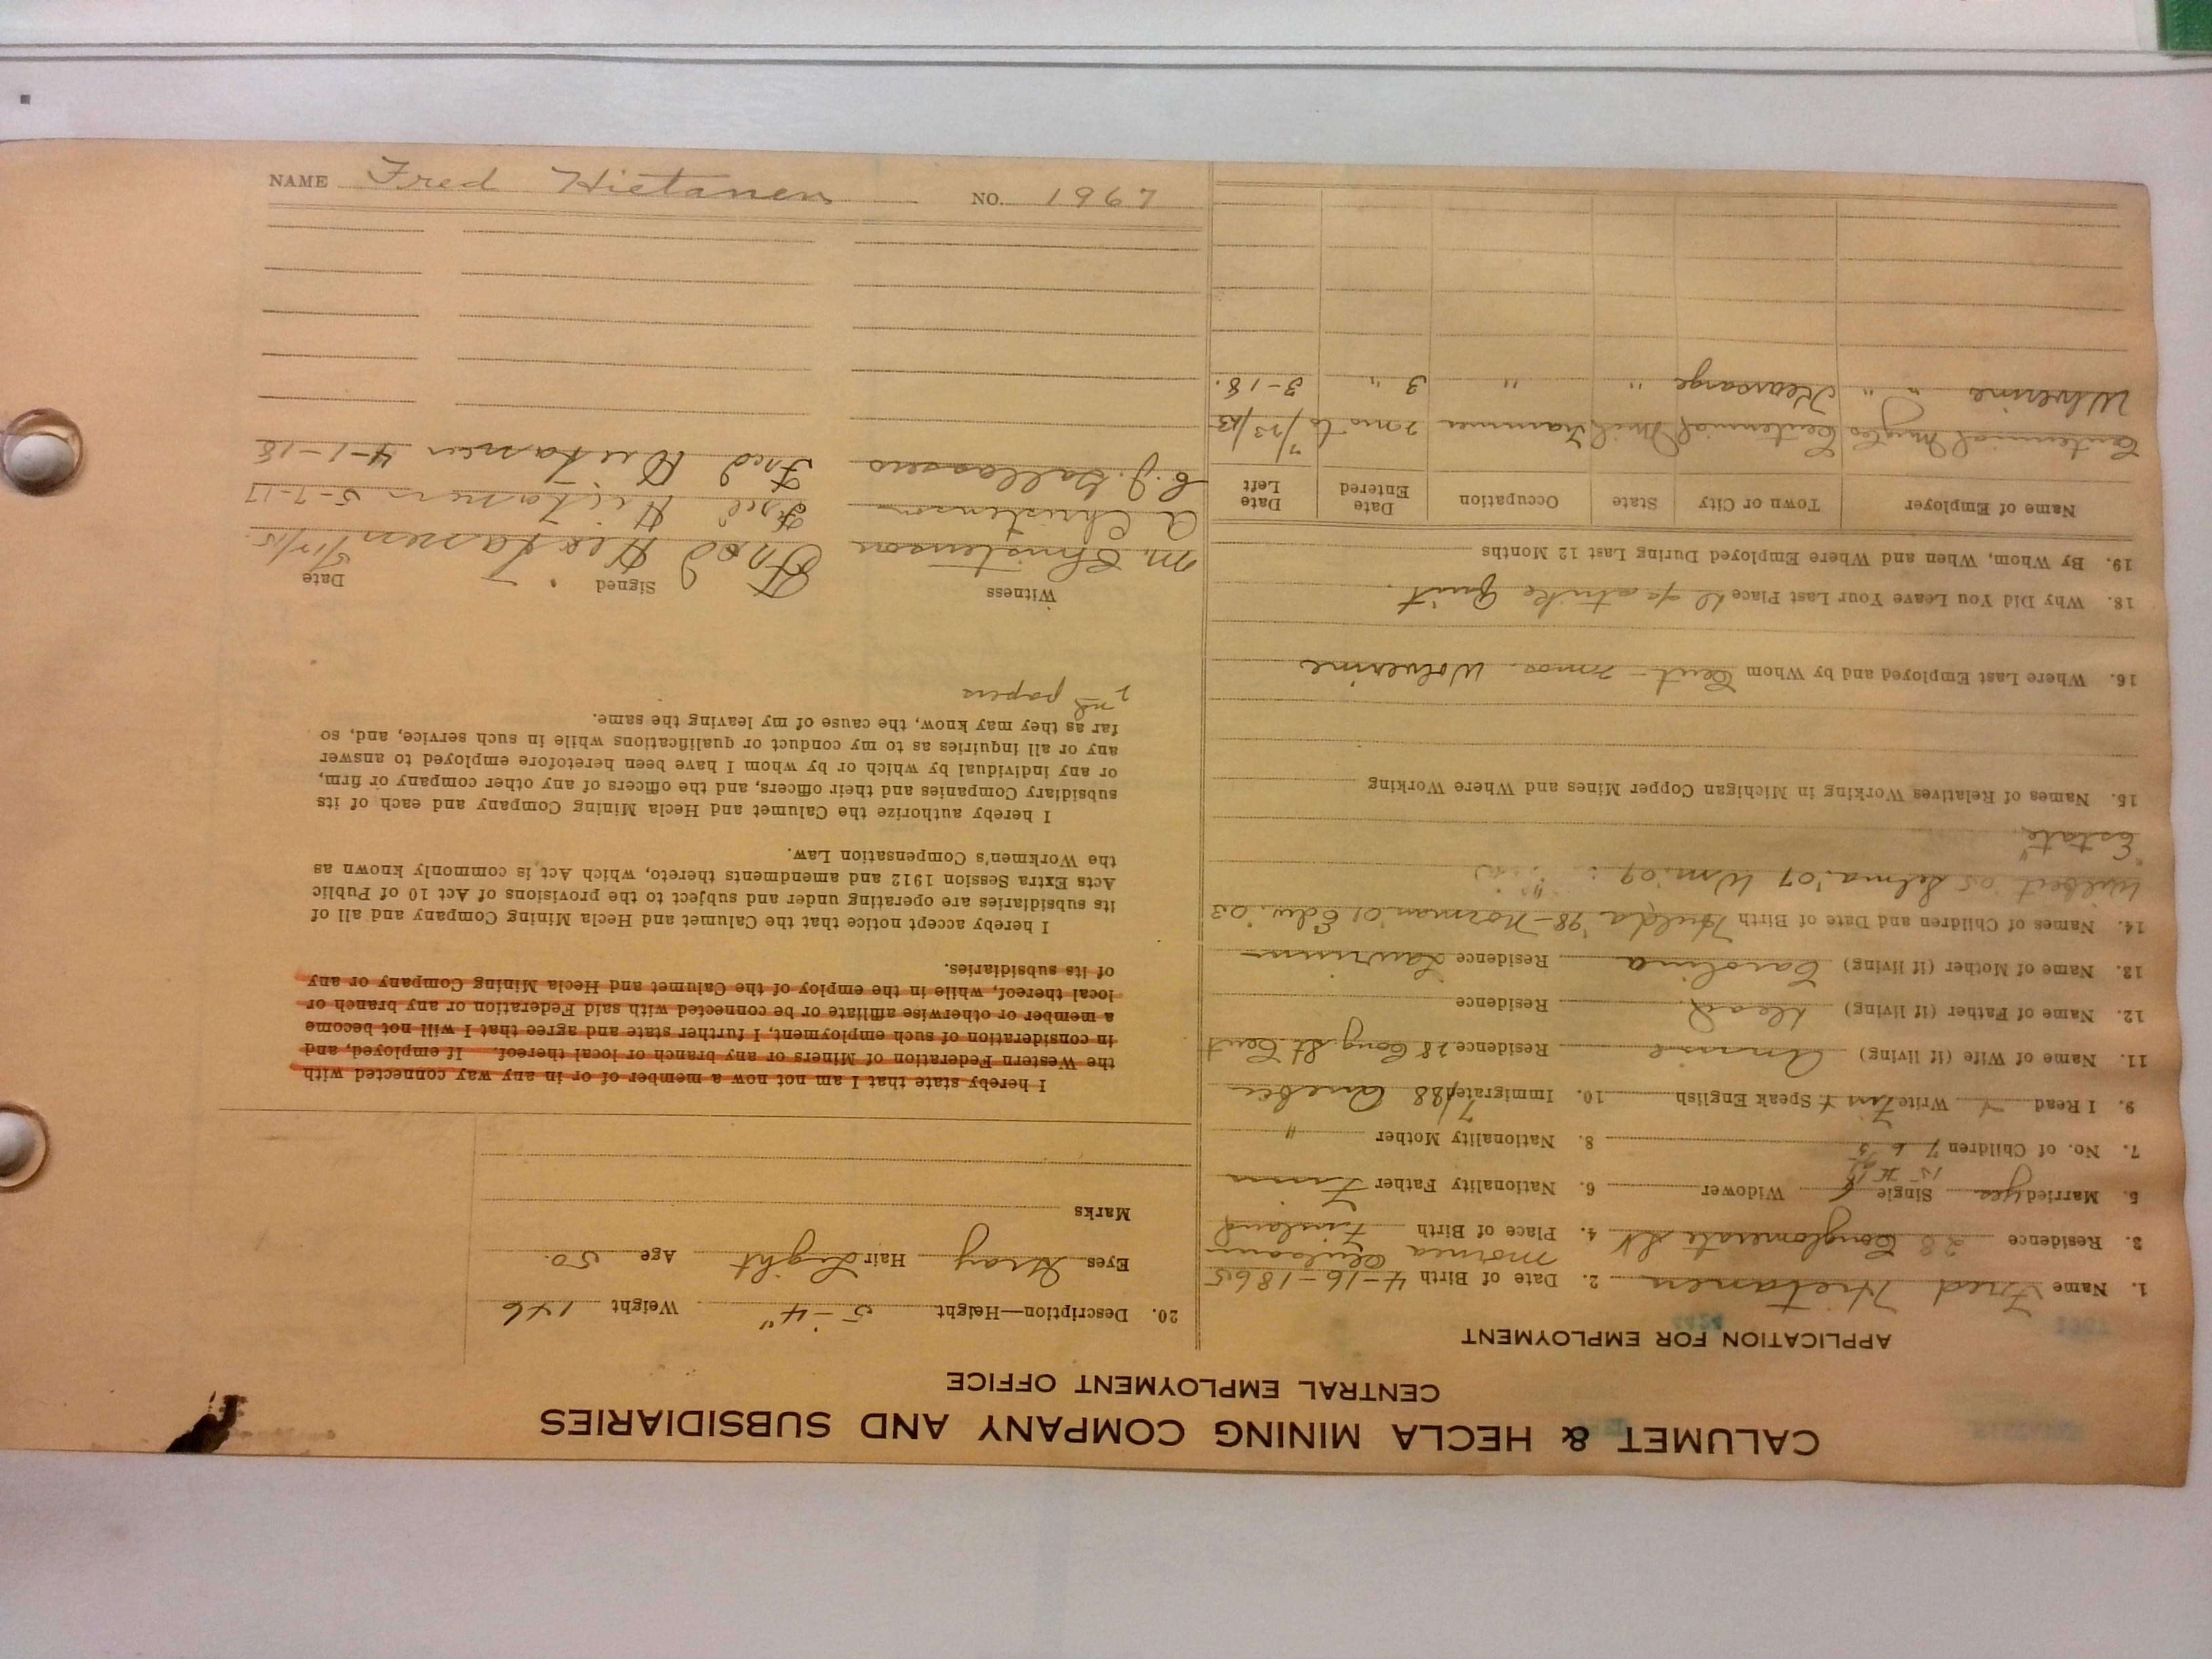 CALUMET & HECLA MINING COMPANY AND SUBSIDIARIES
CENTRAL EMPLOYMENT OFFICE
APPLICATION FOR EMPLOYMENT
1. Name Fred Hietanen 2. Date of Birth 4-16-1865
3. Residence 28 Conglomerate St 4. Place of Birth Finland
5. Married yes Single Widower 6. Nationality Father Finn
7. No. of Children 7 6 5 8. Nationality Mother "
9. I Read Write Finn Speak English 10. Immigrated 7/88 Quebec
11. Name of Wife (if living) Residence 28 Cong St Cent
12. Name of Father (if living) dead Residence
13. Name of Mother (if living) Carolina Residence Laurium
14. Names of Children and Date of Birth Hulda '98 - Norman '01 Edw. '03
Wilbert '05 Selma '07 Wm. '09
"Estate"
15. Names of Relatives Working in Michigan Copper Mines and Where Working
16. Where Last Employed and by Whom Cent - Wolverine
18. Why Did You Leave Your Last Place strike Quit.
19. By Whom, When and Where Employed During Last 12 Months
Name of Employer Town or City State Occupation Date Entered Date Left
Centennial Mng Co Centennial Mich Trammer 2 mo to 7/23/13
Wolverine " " Kearsarge " " 3 " 3-18.
20. Description—Height 5-4" Weight 146
Eyes Gray Hair Light Age 50.
Marks
I hereby state that I am not now a member of or in any way connected with
the Western Federation of Miners or any branch or local thereof. If employed, and
in consideration of such employment, I further state and agree that I will not become
a member or otherwise affiliate or be connected with said Federation or any branch or
local thereof, while in the employ of the Calumet and Hecla Mining Company or any
of its subsidiaries.
I hereby accept notice that the Calumet and Hecla Mining Company and all of
its subsidiaries are operating under and subject to the provisions of Act 10 of Public
Acts Extra Session 1912 and amendments thereto, which Act is commonly known as
the Workmen's Compensation Law.
I hereby authorize the Calumet and Hecla Mining Company and each of its
subsidiary Companies and their officers, and the officers of any other company or firm,
or any individual by which or by whom I have been heretofore employed to answer
any or all inquiries as to my conduct or qualifications while in such service, and, so
far as they may know, the cause of my leaving the same.
2nd papers
Witness Signed Date
M. Christenson Fred Hietanen 5/17/15.
A Christenson Fred Hietanen 5-7-17
Fred Hietanen 4-1-18
NAME Fred Hietanen NO. 1967